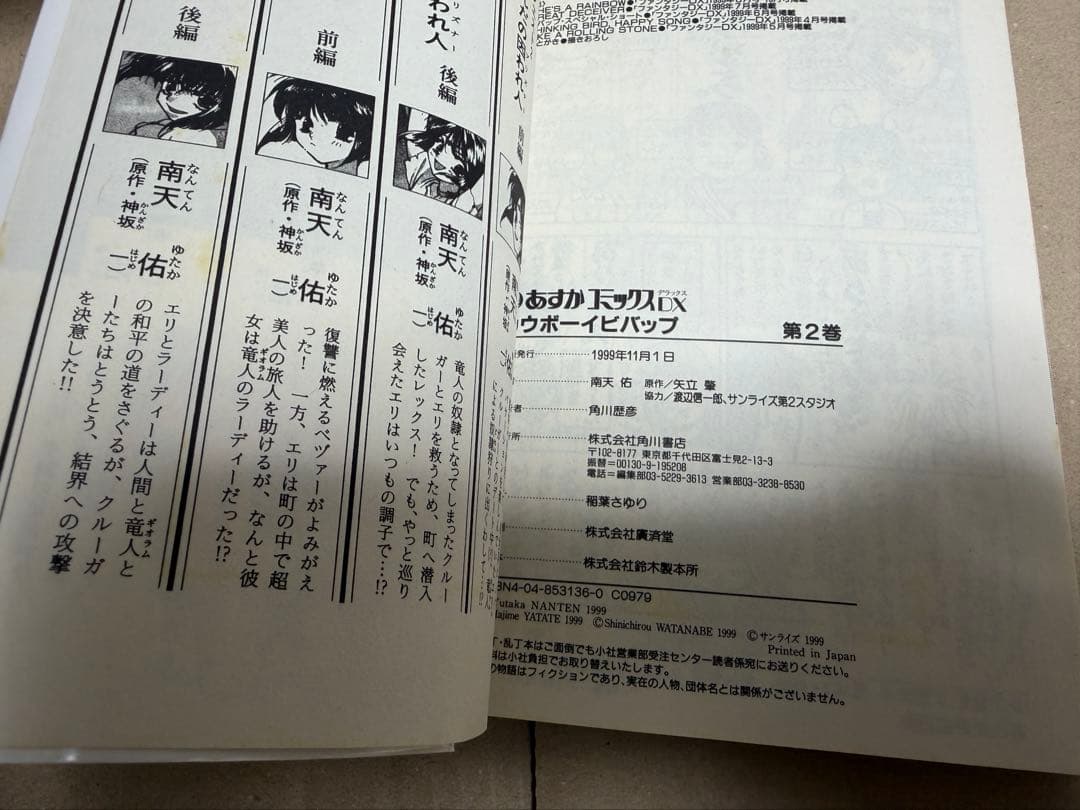 HE'S A RAINBOW●「ファンタジーDX」1999年7月号掲載
REAT DECEIVER●「ファンタジーDX」1999年6月号掲載
HINKING BIRD, HAPPY SONG●「ファンタジーDX」1999年4月号掲載
KE A ROLLING STONE●「ファンタジーDX」1999年5月号掲載
とがき●描きおろし
あすかコミックスDX
デラックス
ウボーイビバップ 第2巻
発行 1999年11月1日
南天 佑 原作/矢立 肇
協力/渡辺信一郎、サンライズ第2スタジオ
者 角川歴彦
所 株式会社角川書店
〒102-8177 東京都千代田区富士見2-13-3
振替=00130-9-195208
電話=編集部03-5229-3613 営業部03-3238-8530
稲葉さゆり
株式会社廣済堂
株式会社鈴木製本所
BN4-04-853136-0 C0979
Yutaka NANTEN 1999
Hajime YATATE 1999 ©Shinichirou WATANABE 1999 ©サンライズ 1999
Printed in Japan
丁・乱丁本はご面倒でも小社営業部受注センター読者係宛にお送りください。
料は小社負担でお取り替えいたします。
の物語はフィクションであり、実在の人物、団体名とは関係がございません。
われ人 後編
リズナー
南天 佑
なんてん ゆたか
(原作・神坂 一)
かんざか はじめ
竜人の奴隷となってしまったクルー
ガーとエリを救うため、町へ潜入
したレックス! でも、やっと巡り
会えたエリはいつもの調子で…!?
前編
南天 佑
なんてん ゆたか
(原作・神坂 一)
かんざか はじめ
復讐に燃えるベヅァーがよみがえ
った! 一方、エリは町の中で超
美人の旅人を助けるが、なんと彼
女は竜人のラーディーだった!?
ギオラム
後編
南天 佑
なんてん ゆたか
(原作・神坂 一)
かんざか はじめ
エリとラーディーは人間と竜人と
ギオラム
の和平の道をさぐるが、クルーガ
ーたちはとうとう、結界への攻撃
を決意した!!